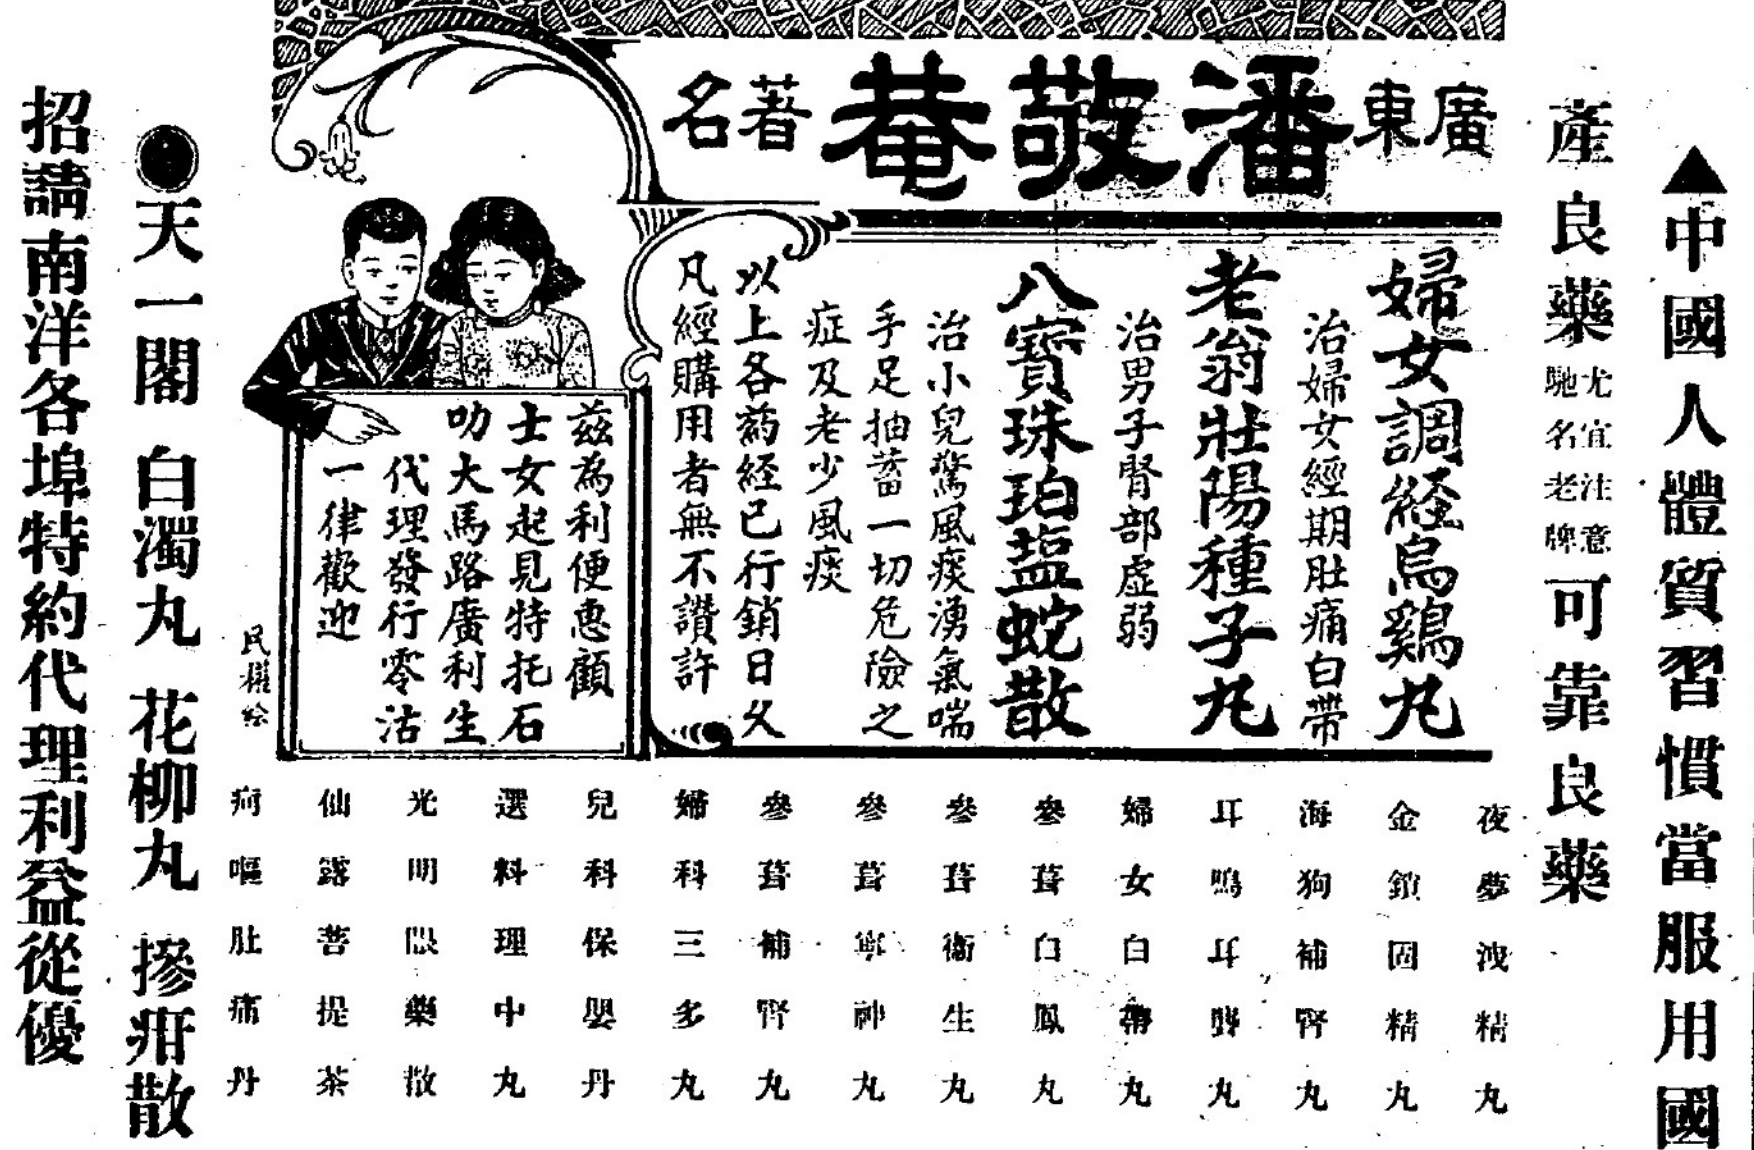 ▲中國人體質習慣當服用國
產良藥
尤宜注意
馳名老牌
可靠良藥
廣東潘敬菴著名
婦女調経烏鷄丸
治婦女經期肚痛白帶
老翁壯陽種子丸
治男子腎部虛弱
八寶珠珀蛇散
治小兒驚風痰湧氣喘
手足抽蓄一切危險之
症及老少風痰
以上各葯経已行銷日久
凡經購用者無不讚許
茲為利便惠顧
士女起見特托石
叻大馬路廣利生
代理發行零沽
一律歡迎
民權絵
夜夢洩精丸
金鎖固精丸
海狗補腎丸
耳鳴耳聾丸
婦女白帶丸
參茸白鳳丸
參茸衞生丸
參茸寧神丸
參茸補腎丸
婦科三多丸
兒科保嬰丹
選料理中丸
光明眼藥散
仙露菩提茶
疴嘔肚痛丹
●天一閣 白濁丸 花柳丸 摻疳散
招請南洋各埠特約代理利益從優